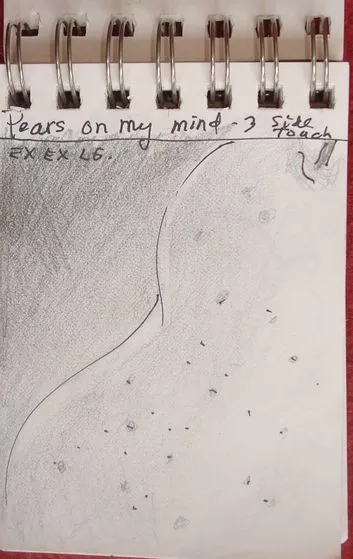 Pears on my mind - 3 side
touch
EX EX LG.